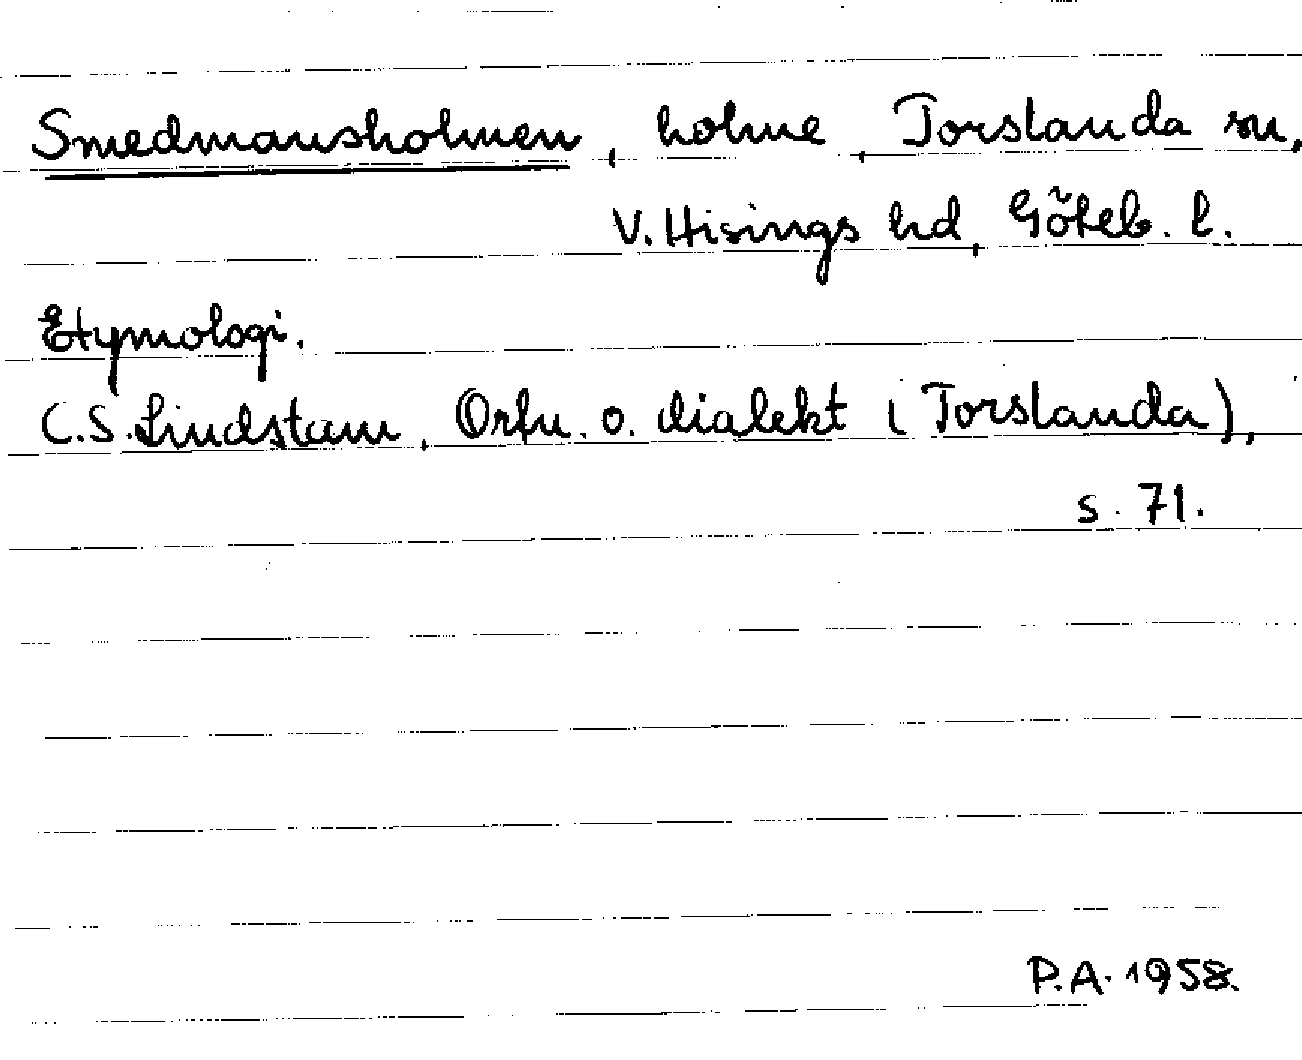 Smedmansholmen, holme, Torslanda sn,
V. Hisings hd, Göteb. l.
Etymologi.
C.S. Lindstam, Ortn. o. dialekt (Torslanda),
s. 71.
P.A. 1958.